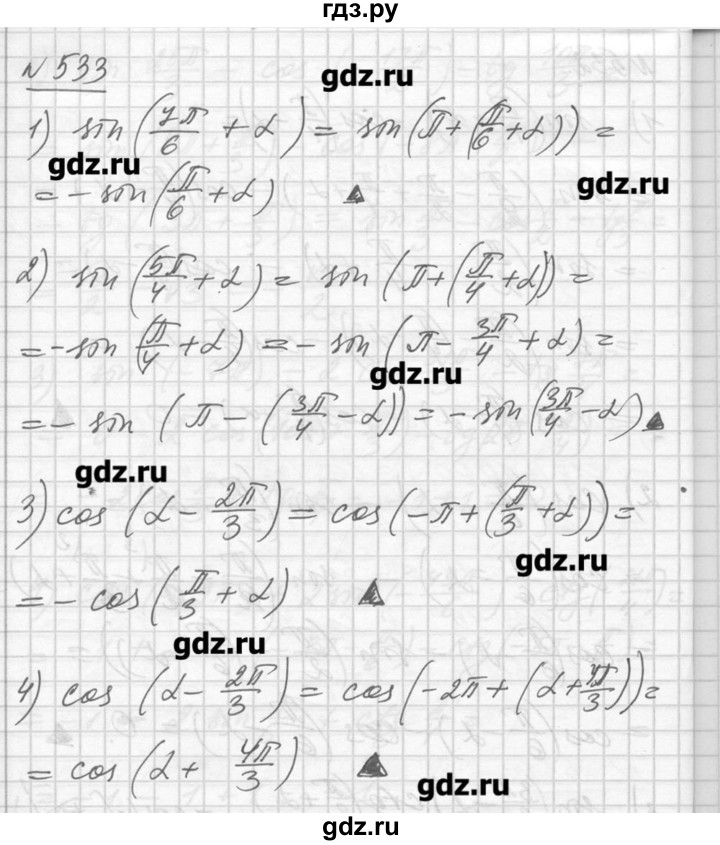 гдз.ру
N 533
gdz.ru
1) sin(7π/6 + α) = sin(π+(π/6+α)) =
gdz.ru
gdz.ru
= - sin(π/6+α) ▲
2) sin(5π/4+α) = sin(π+(π/4+α)) =
= - sin(π/4+α) = - sin(π - 3π/4 + α) =
gdz.ru
= - sin(π - (3π/4 - α)) = - sin(3π/4 - α) ▲
gdz.ru
3) cos(α - 2π/3) = cos(-π+(π/3+α)) =
gdz.ru
= - cos(π/3 + α) ▲
gdz.ru
4) cos(α - 2π/3) = cos(-2π+(α+4π/3)) =
= cos(α + 4π/3) ▲
gdz.ru
gdz.ru